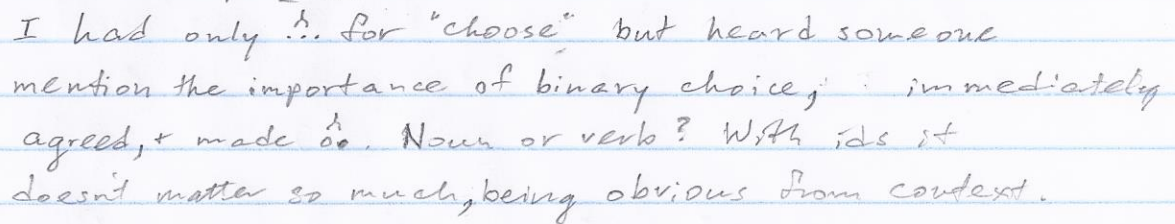 I had only for "choose" but heard someone
mention the importance of binary choice, immediately
agreed, + made . Noun or verb? With ids it
doesn't matter so much, being obvious from context.